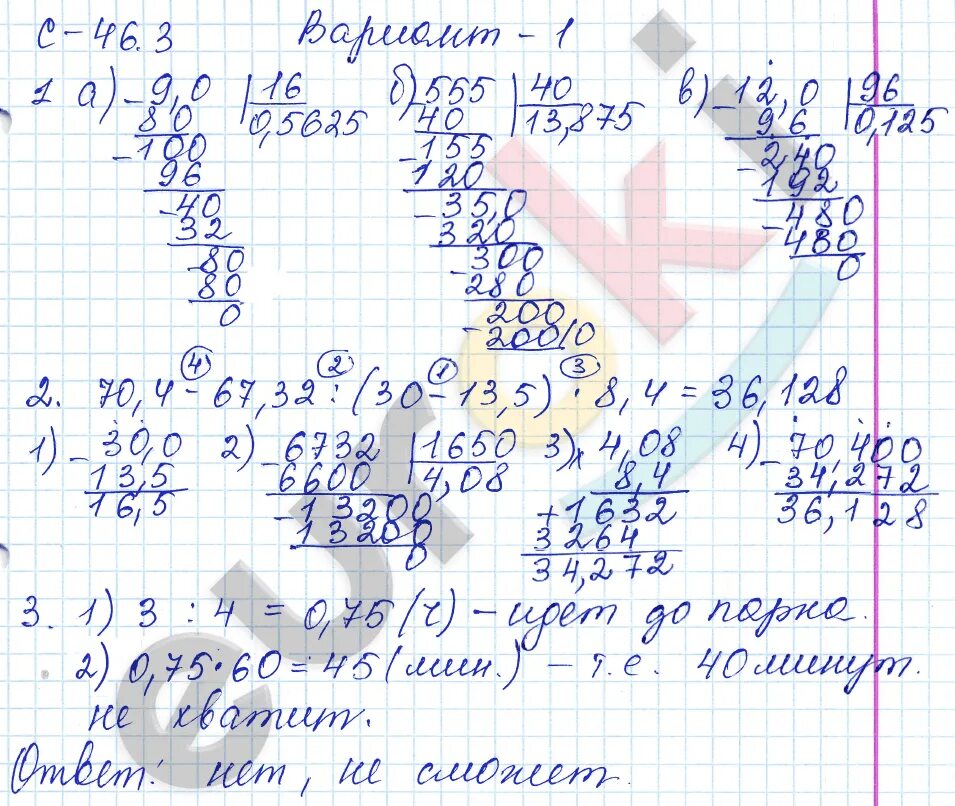 С-46.3 Вариант - 1
1 а) -9,0 |16 б) -555 |40 в) -12,0 |96
80 0,5625 40 13,875 -9 6 0,125
-100 -155 -2,40
96 120 192
-40 -35,0 -480
32 320 480
-80 -300 0
80 280
0 -200
200 0
④ ② ① ③
2. 70,4 - 67,32 : (30 - 13,5) · 8,4 = 36,128
1) -30,0 2) -6732 |1650 3) × 4,08 4) -70,400
13,5 6600 4,08 8,4 34,272
16,5 -13200 +1632 36,128
13200 3264
0 34,272
3. 1) 3 : 4 = 0,75 (ч) - идет до парка.
2) 0,75 · 60 = 45 (мин.) - т.е. 40 минут.
не хватит.
Ответ: нет, не сможет.
euroki